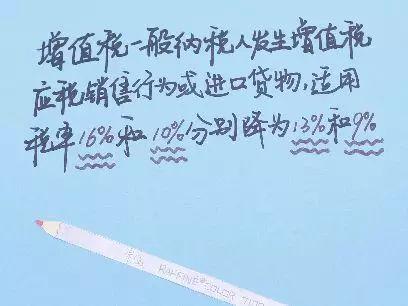 增值税一般纳税人发生增值税
应税销售行为或进口货物,适用
税率16%和10%分别降为13%和9%